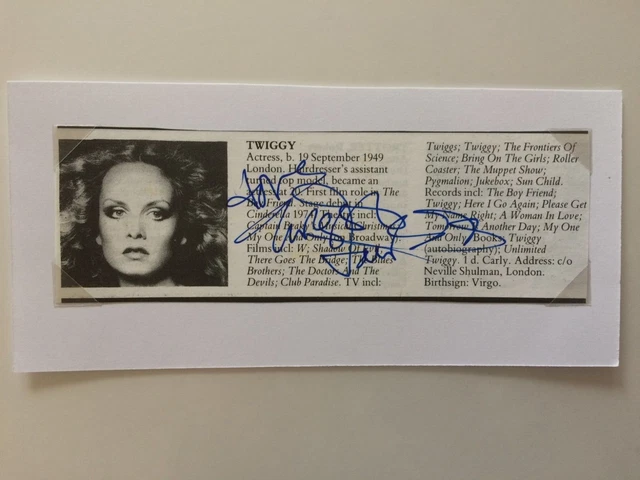 TWIGGY
Actress, b. 19 September 1949
London. Hairdresser's assistant
turned top model, became an
actress at 20. First film role in The
Boy Friend. Stage debut in
Cinderella 1974. Theatre incl:
Captain Beaky Christmas
My One And Only (on Broadway).
Films incl: W; Shadow Of
There Goes The Bridge; The Blues
Brothers; The Doctor And The
Devils; Club Paradise. TV incl:
Twiggs; Twiggy; The Frontiers Of
Science; Bring On The Girls; Roller
Coaster; The Muppet Show;
Pygmalion; Jukebox; Sun Child.
Records incl: The Boy Friend;
Twiggy; Here I Go Again; Please Get
My Name Right; A Woman In Love;
Tomorrow Is Another Day; My One
And Only. Books: Twiggy
(autobiography); Unlimited
Twiggy. 1 d. Carly. Address: c/o
Neville Shulman, London.
Birthsign: Virgo.
Love